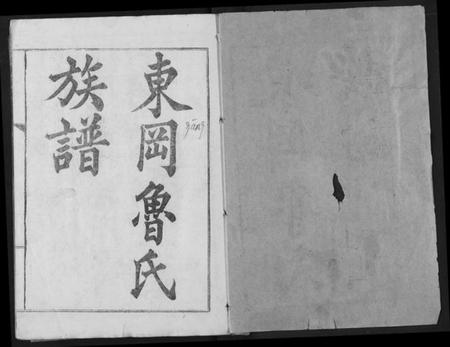 東岡魯氏
族譜